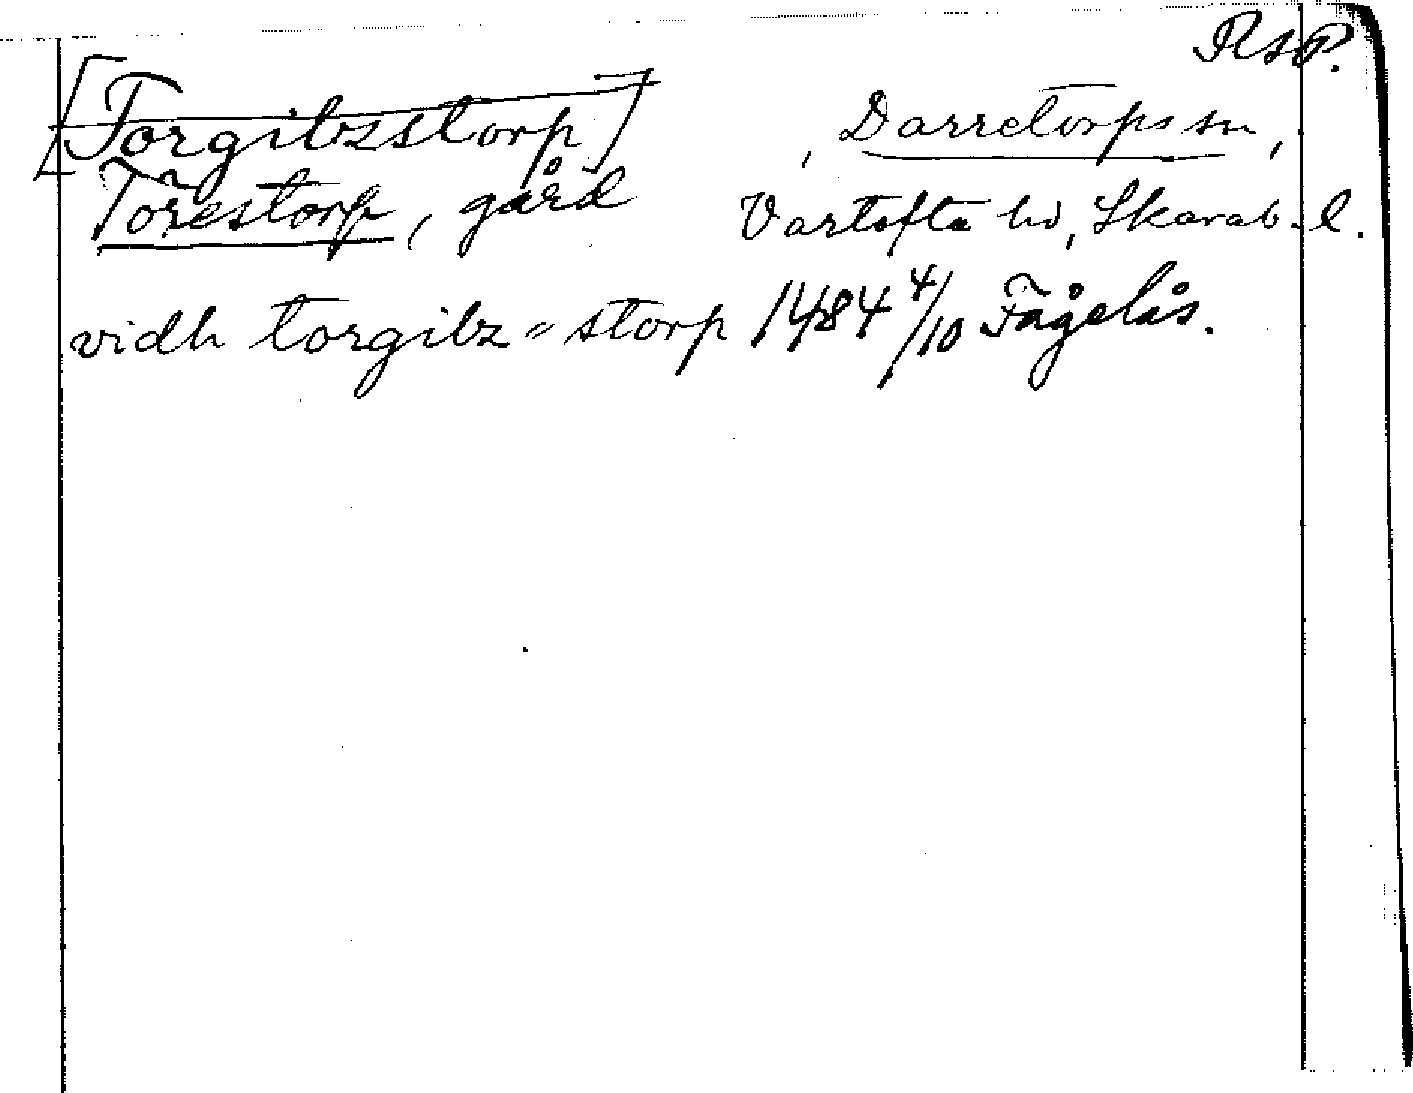 RAP.
[Torgilzstorp]
, Darretorps sn,
Torestorp, gård
Vartofta hd, Skarab. l.
vidh torgilz = storp 1484 4/10 Fågelås.